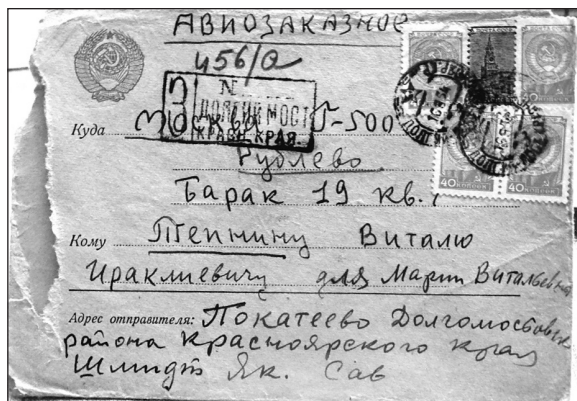 АВИОЗАКАЗНОЕ
456/а
З N
ДОЛГИЙ МОСТ
КРАСН. КРАЯ.
Куда Москва Г-500
Рублево
Барак 19 кв. 1
Кому Тепнину Виталю
Ираклиевичу для Марии Витальевны
Адрес отправителя: Покатеево Долгомостовск
района Красноярского края
Шмидт Як. Сав
40 КОПЕЕК
40 КОПЕЕК